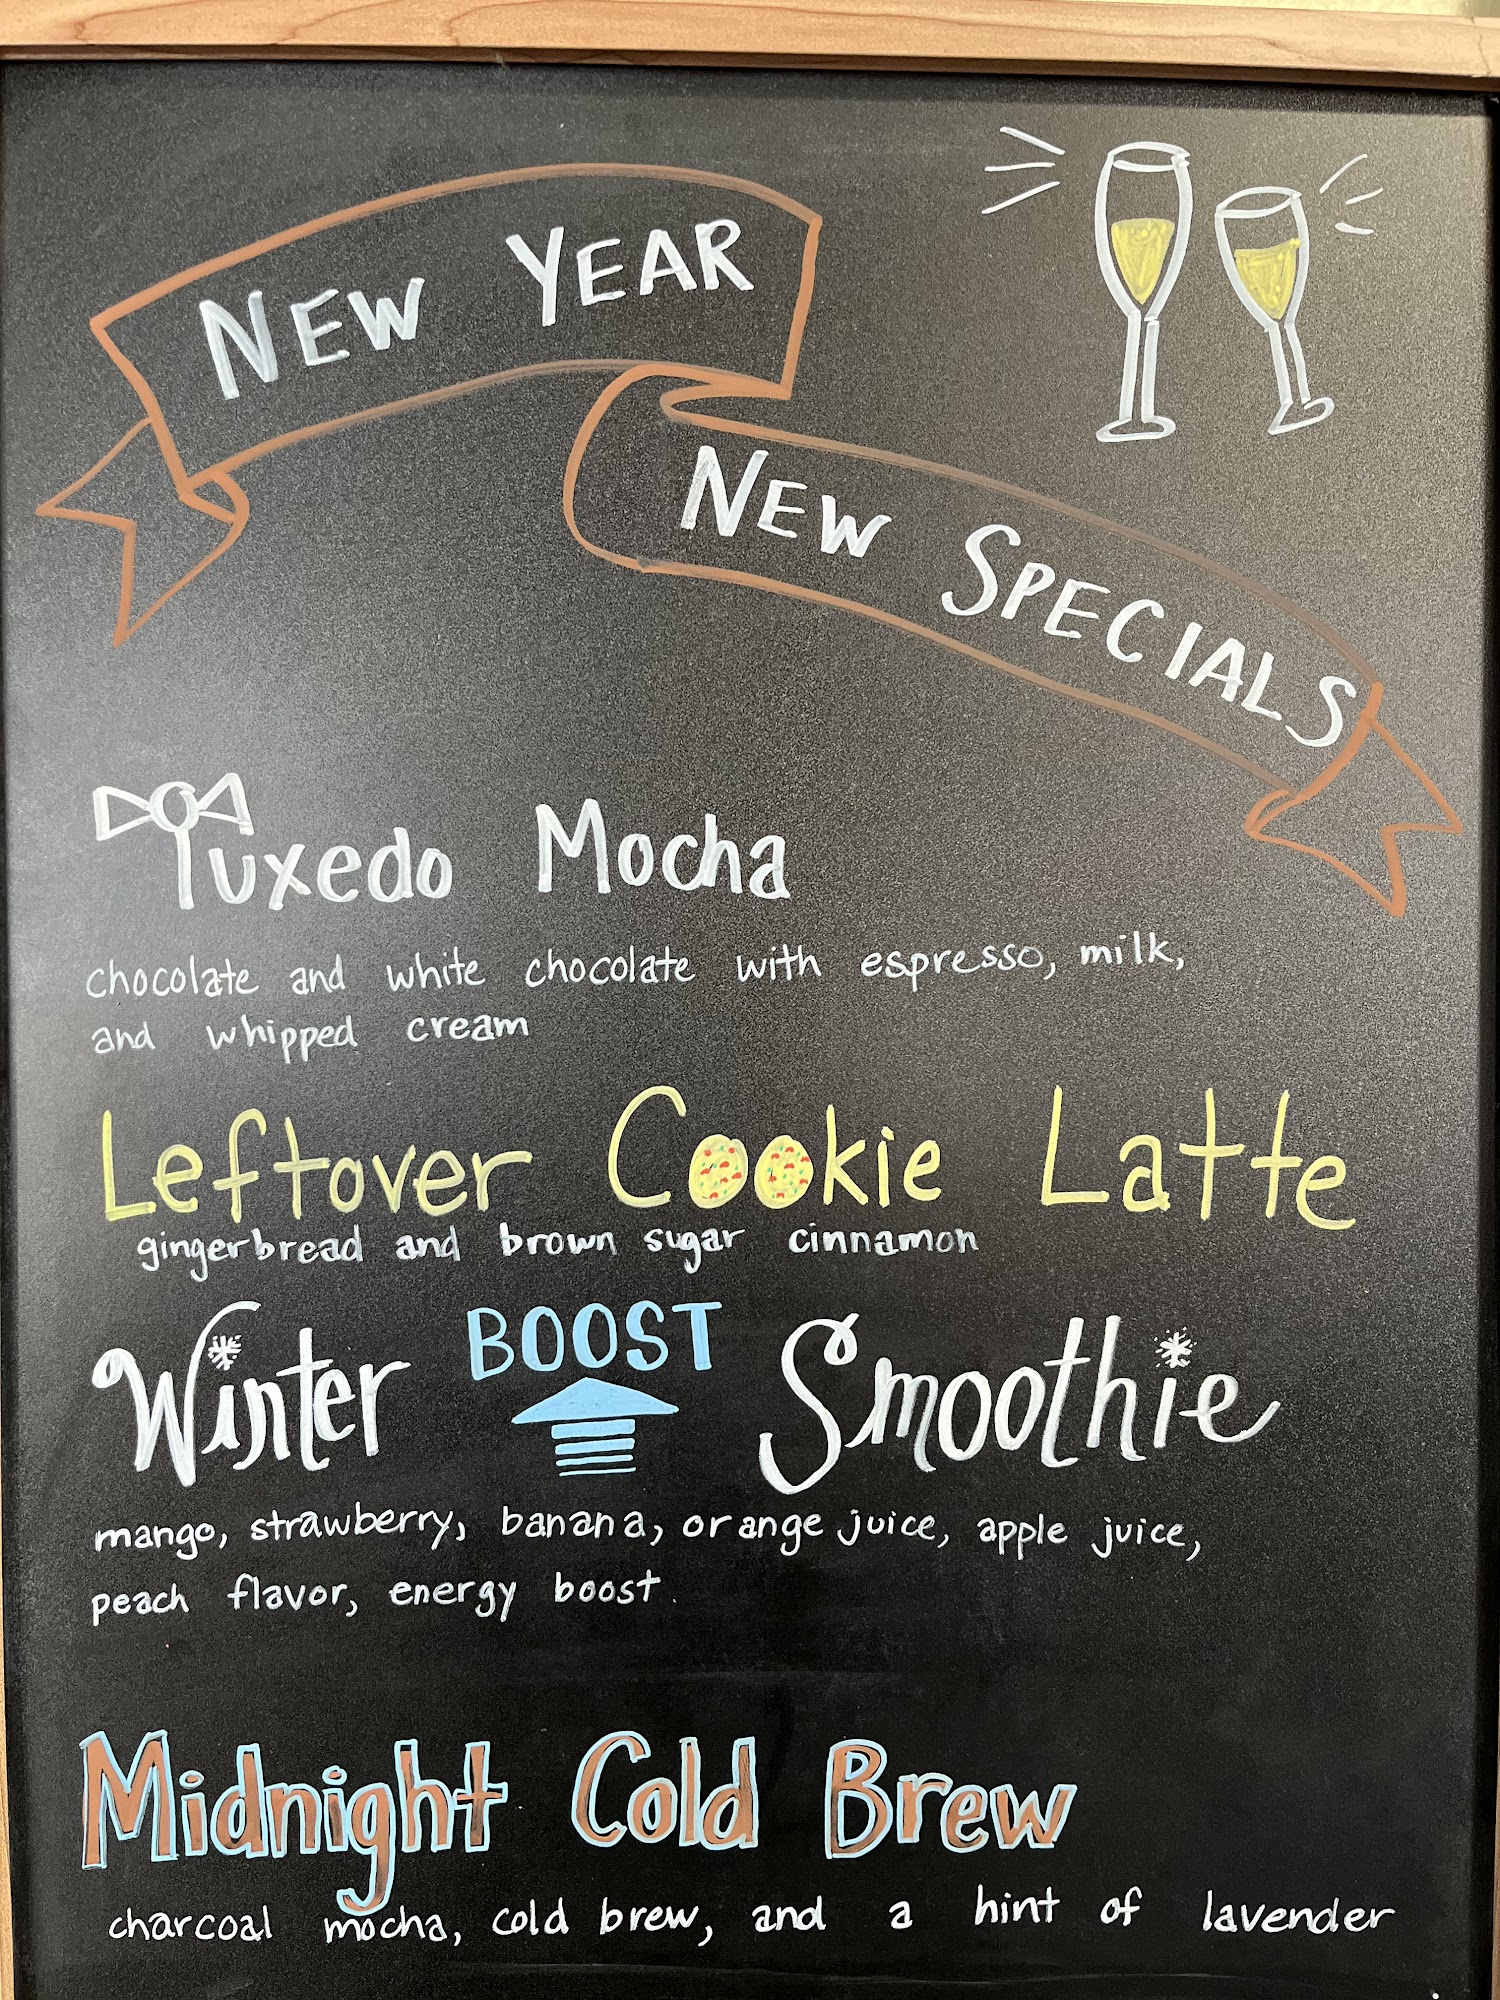 NEW YEAR
NEW SPECIALS
Tuxedo Mocha
chocolate and white chocolate with espresso, milk,
and whipped cream
Leftover Cookie Latte
gingerbread and brown sugar cinnamon
Winter BOOST Smoothie
mango, strawberry, banana, orange juice, apple juice,
peach flavor, energy boost.
Midnight Cold Brew
charcoal mocha, cold brew, and a hint of lavender